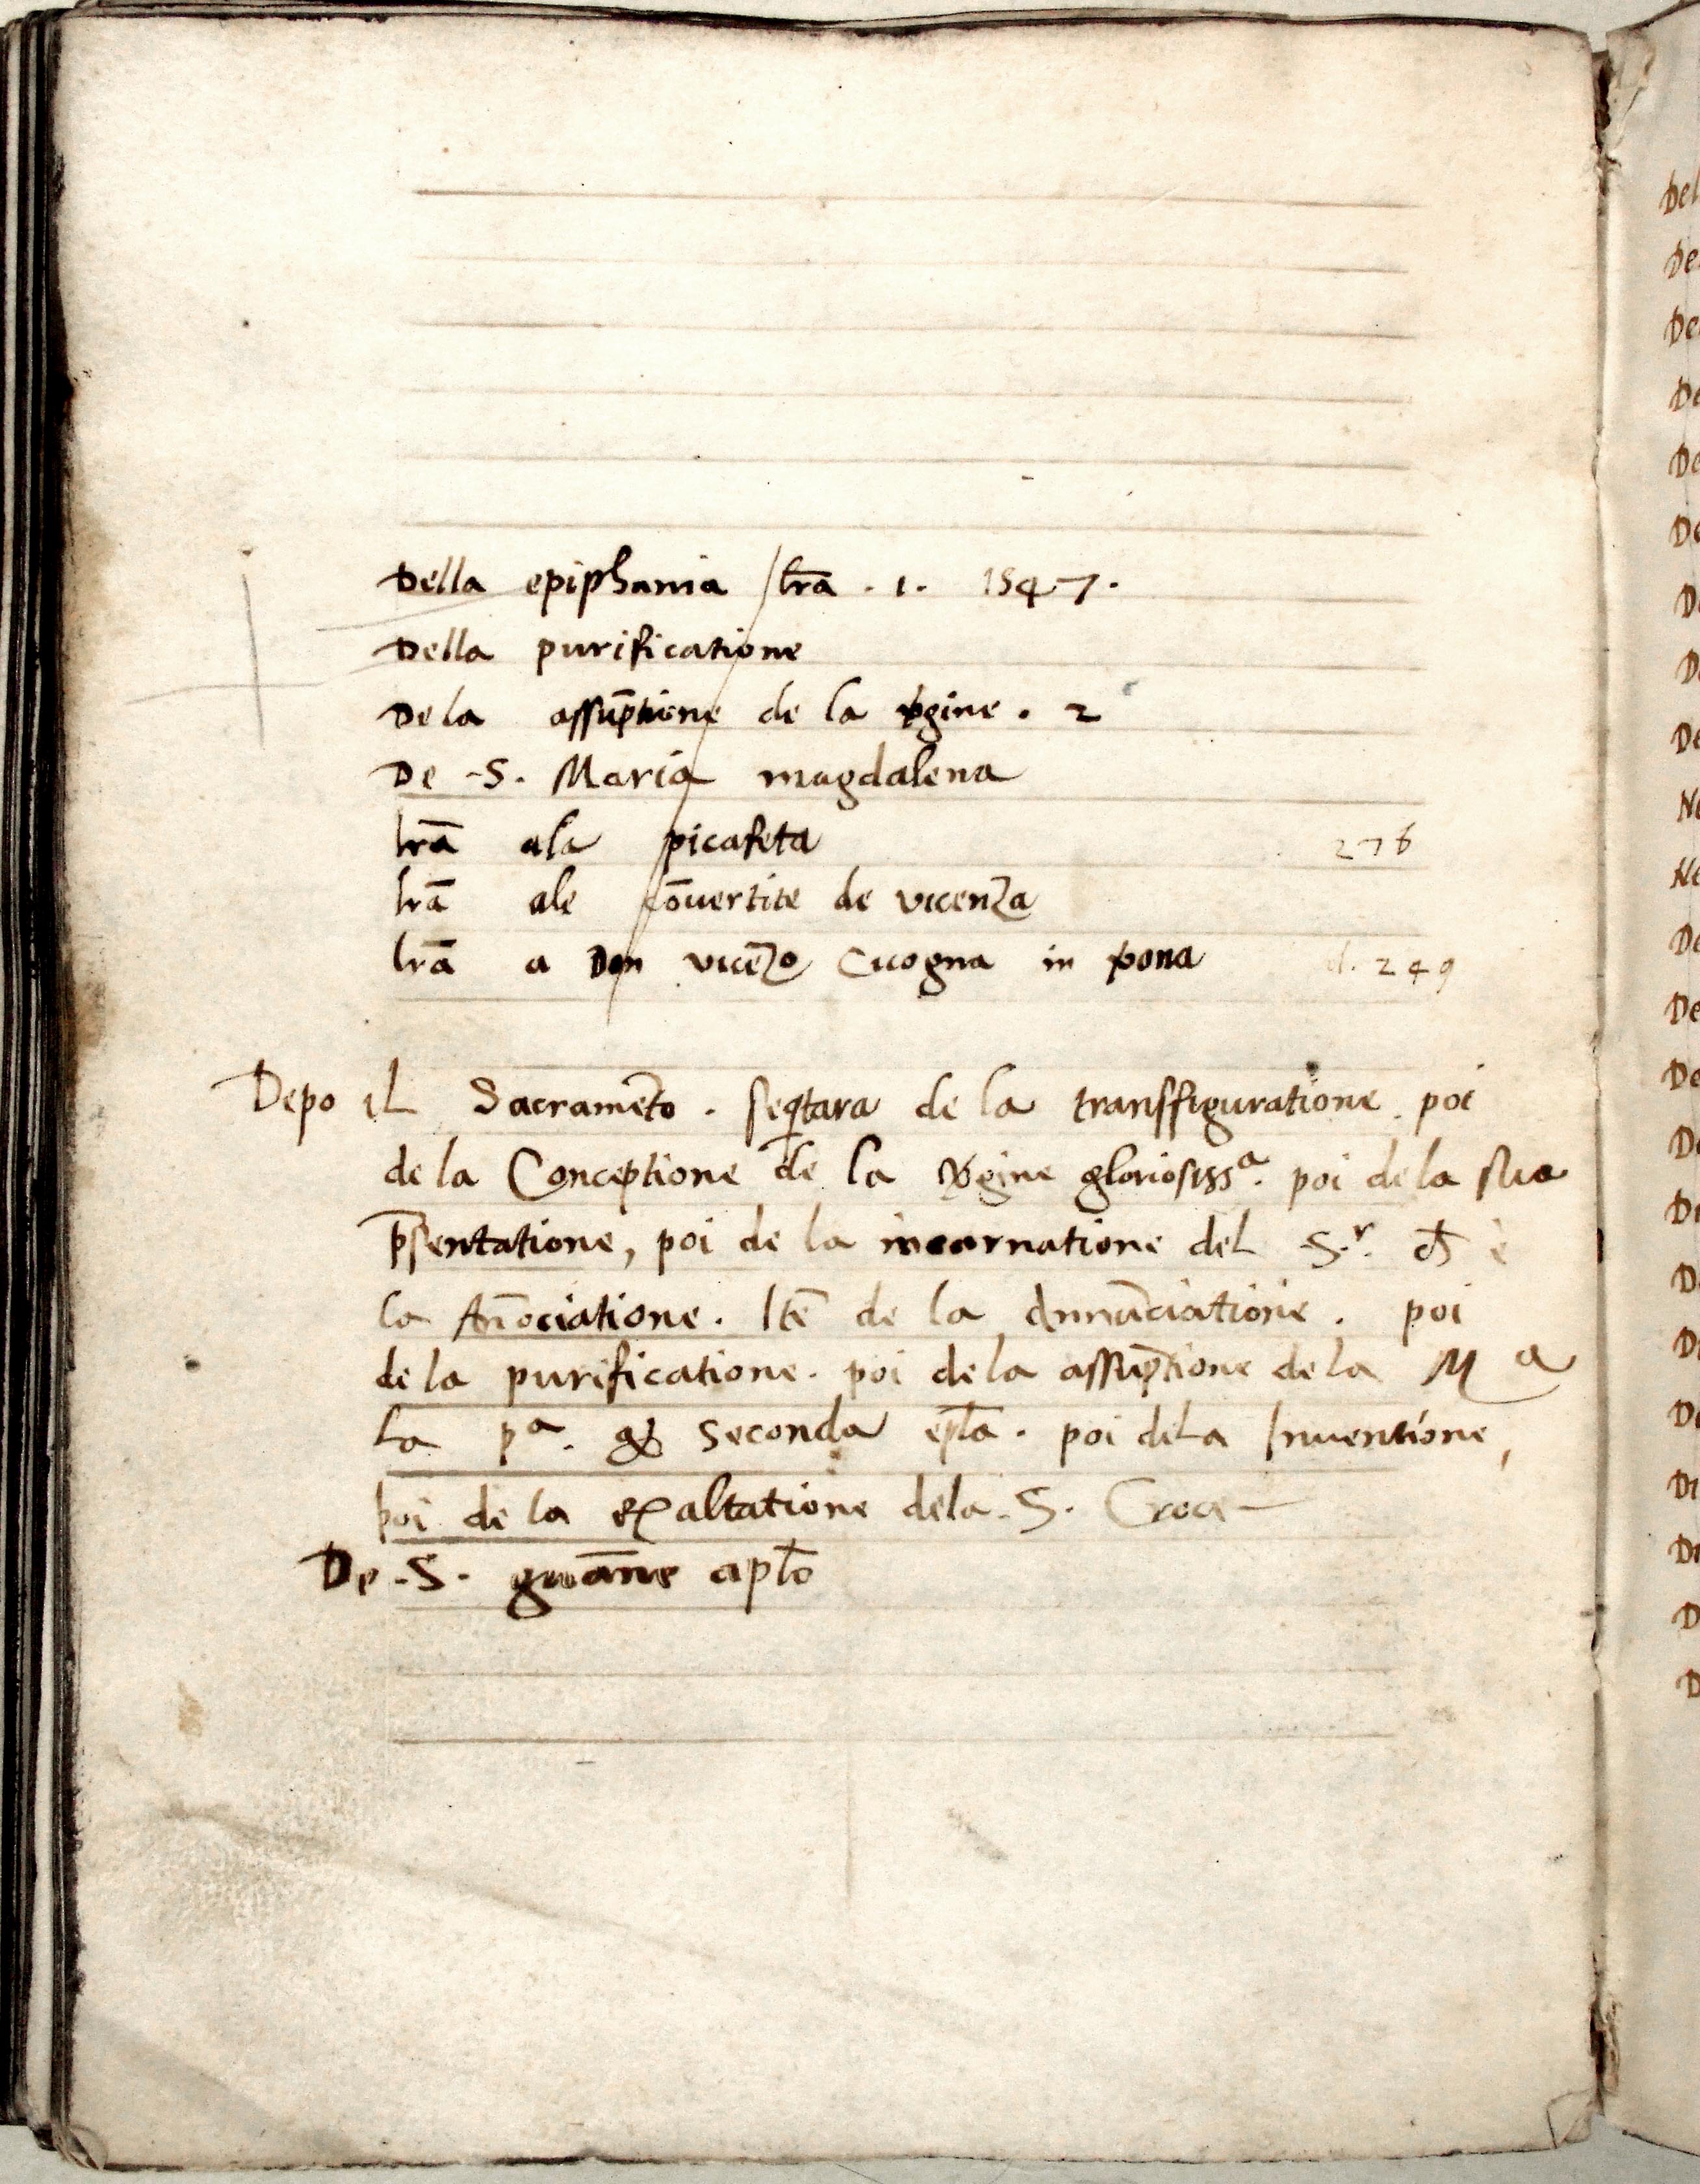 Della epiphania / lr̄a . 1. 1547.
Della purificatione
De la assup̄tione de la v̄gine . 2
De .S. Maria magdalena
lr̄a ala picafeta 276
lr̄a ale cōuertite de vicenza
lr̄a a Don vicēzo Cicogna in v̄ona d. 249
Depo il Sacramēto . seq̄tara de la transfiguratione . poi
de la Conceptione de la v̄gine gloriosissᵃ. poi de la sua
p̄sentatione, poi de la incarnatione del S.ʳ ch̄ è
la An̄ociatione. Itē de la Annūciatione . poi
de la purificatione . poi de la assup̄tione de la Mᵃ
la pᵃ. & seconda epl̄a . poi dela Inuentione,
poi de la exaltatione dela .S. Croce
De .S. gioāne apl̄o